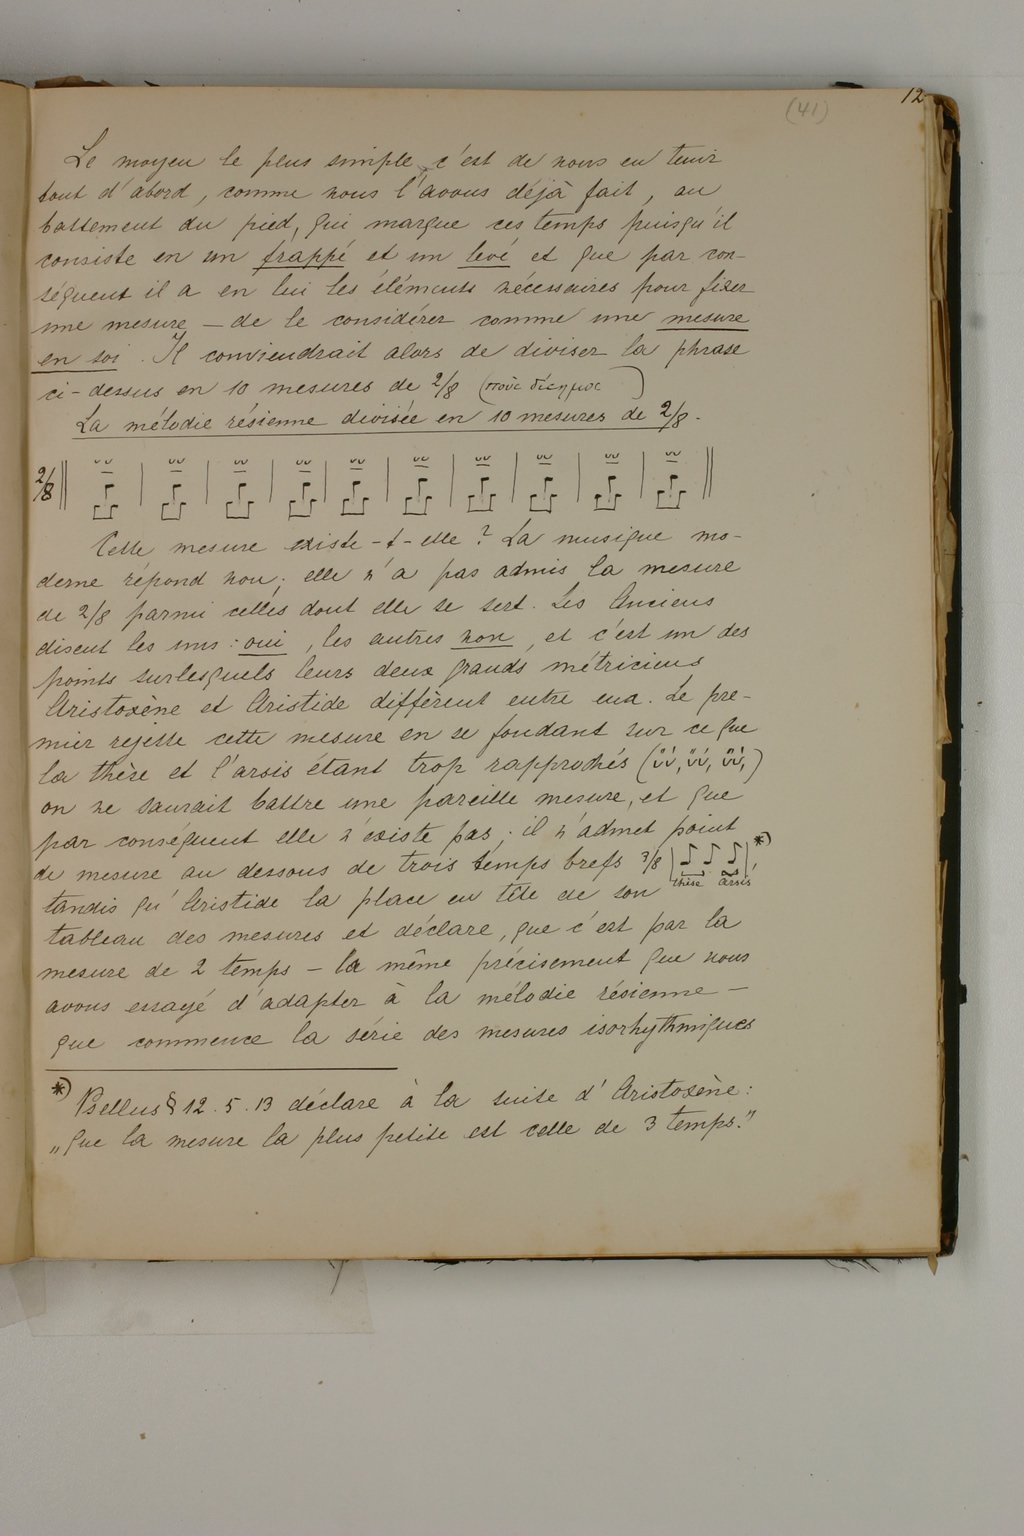 (41)
12
Le moyen le plus simple, c'est de nous en tenir
tout d'abord, comme nous l'avons déjà fait, au
battement du pied, qui marque ces temps puisqu'il
consiste en un frappé et un levé et que par con-
séquent il a en lui les éléments nécessaires pour fixer
une mesure – de le considérer comme une mesure
en soi. Il conviendrait alors de diviser la phrase
ci-dessus en 10 mesures de 2/8 (ποὺς δίσημος)
La mélodie résienne divisée en 10 mesures de 2/8.
2/8
Cette mesure existe-t-elle? La musique mo-
derne répond non; elle n'a pas admis la mesure
de 2/8 parmi celles dont elle se sert. Les Anciens
disent les uns: oui, les autres non, et c'est un des
points surlesquels leurs deux grands métriciens
Aristoxène et Aristide diffèrent entre eux. Le pre-
mier rejette cette mesure en se fondant sur ce que
la thèse et l'arsis étant trop rapprochés
on ne saurait battre une pareille mesure, et que
par conséquent elle n'existe pas; il n'admet point
de mesure au dessous de trois temps brefs 3/8 *)
thèse arsis
tandis qu'Aristide la place en tête de son
tableau des mesures et déclare, que c'est par la
mesure de 2 temps – la même précisement que nous
avons essayé d'adapter à la mélodie résienne –
que commence la série des mesures isorhythmiques
*) Psellus § 12.5.13 déclare à la suite d'Aristoxène:
„que la mesure la plus petite est celle de 3 temps."